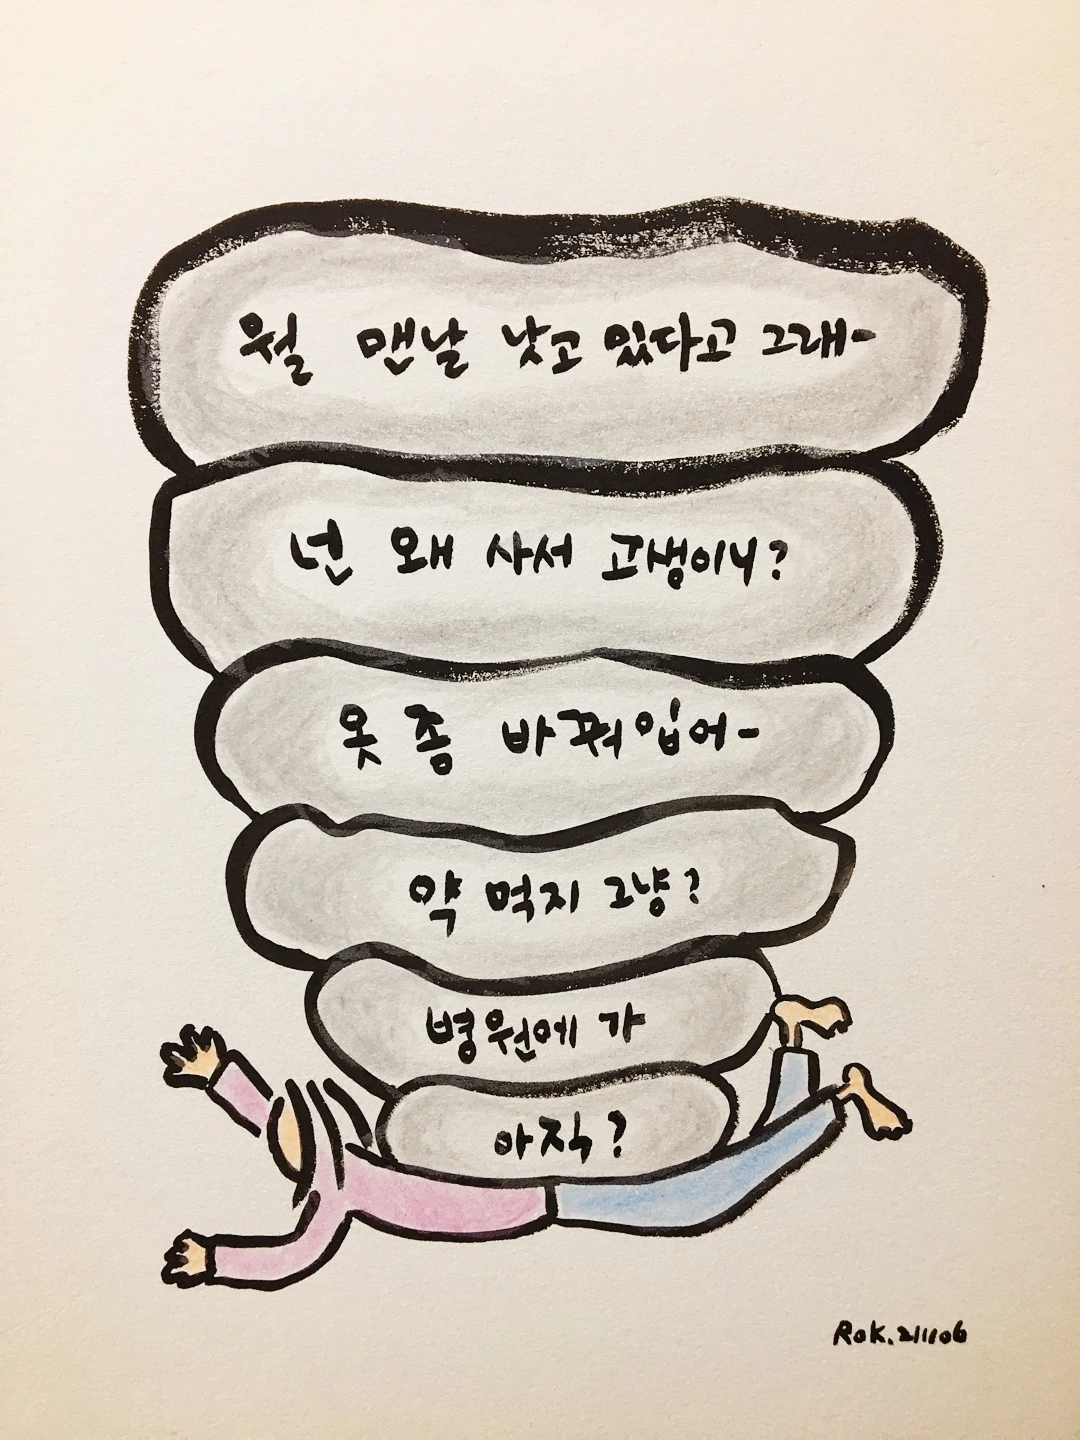 뭘 맨날 낫고 있다고 그래-
넌 왜 사서 고생이니?
옷 좀 바꿔입어-
약 먹지 그냥?
병원에 가
아직?
Rok. 211106